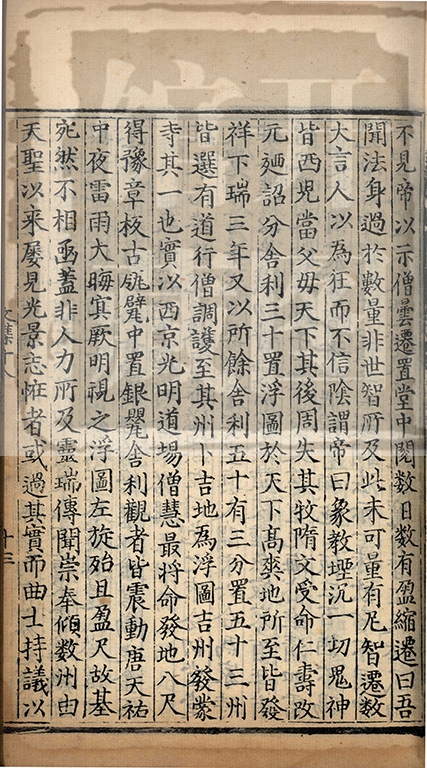 不見帝以示僧曇遷置堂中閱数日数有盈縮遷曰吾
聞法身過於數量非世智所及此未可量有尼智遷数
大言人以為狂而不信陰謂帝曰象教堙沉一切鬼神
皆西兒當父母天下其後周失其牧隋文受命仁壽改
元廼詔分舍利三十置浮圖於天下髙爽地所至皆發
祥下瑞三年又以所餘舍利五十有三分置五十三州
皆選有道行僧調護至其州卜吉地為浮圖吉州發蒙
寺其一也實以西京光明道場僧慧最將命發地八尺
得豫章板古甓中置銀甖舍利觀者皆震動唐天祐
中夜雷雨大晦㝠厥明視之浮圖左旋殆且盈尺故基
宛然不相函蓋非人力所及靈瑞傳聞崇奉傾数州由
天聖以来屡見光景志恠者或過其實而曲士持議以
文集十八
十三